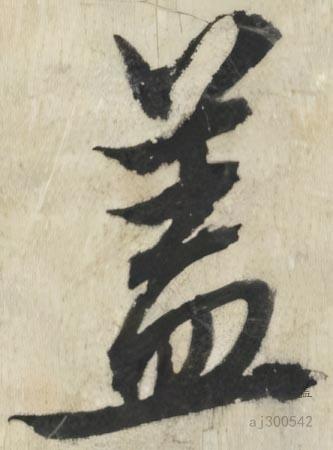 盖
盖
aj300542